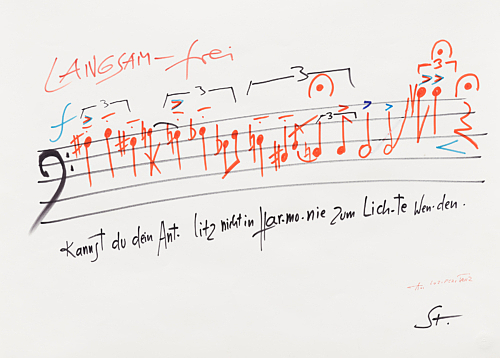 LANGSAM – frei
3 3 3 3
3
f
Kannst du dein Ant. litz nicht in Har.mo.nie zum Lich.te Wen.den.
St.